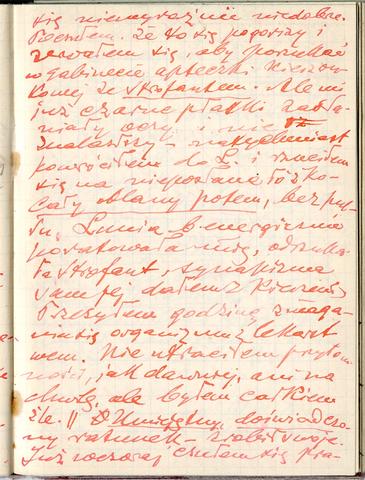 się niewyraźnie niedobrze.
Poczułem, że to się pogorszy i
zerwałem się, aby poszukać
w gabinecie apteczki kieszon-
kowej ze strofantem. Ale mi
już czarne płatki zasła-
niały oczy i nie
znalazłszy - natychmiast
powróciłem do L. i rzuciłem
się na nieposłane łóżko -
cały oblany potem, bez pul-
su. Lunia b. energicznie
poratowała mnie, odszuka-
ła strofant, synapizma
sam jej dałem z kieszeni
Przeżyłem godzinę zmaga-
nia się organizmu z lekarst-
wem. Nie utraciłem przytom-
ności, jak dawniej, ani na
chwilę, ale byłem całkiem
źle. || Umiejętny, doświadczo-
ny ratunek - zrobił swoje.
Już wczoraj czułem się